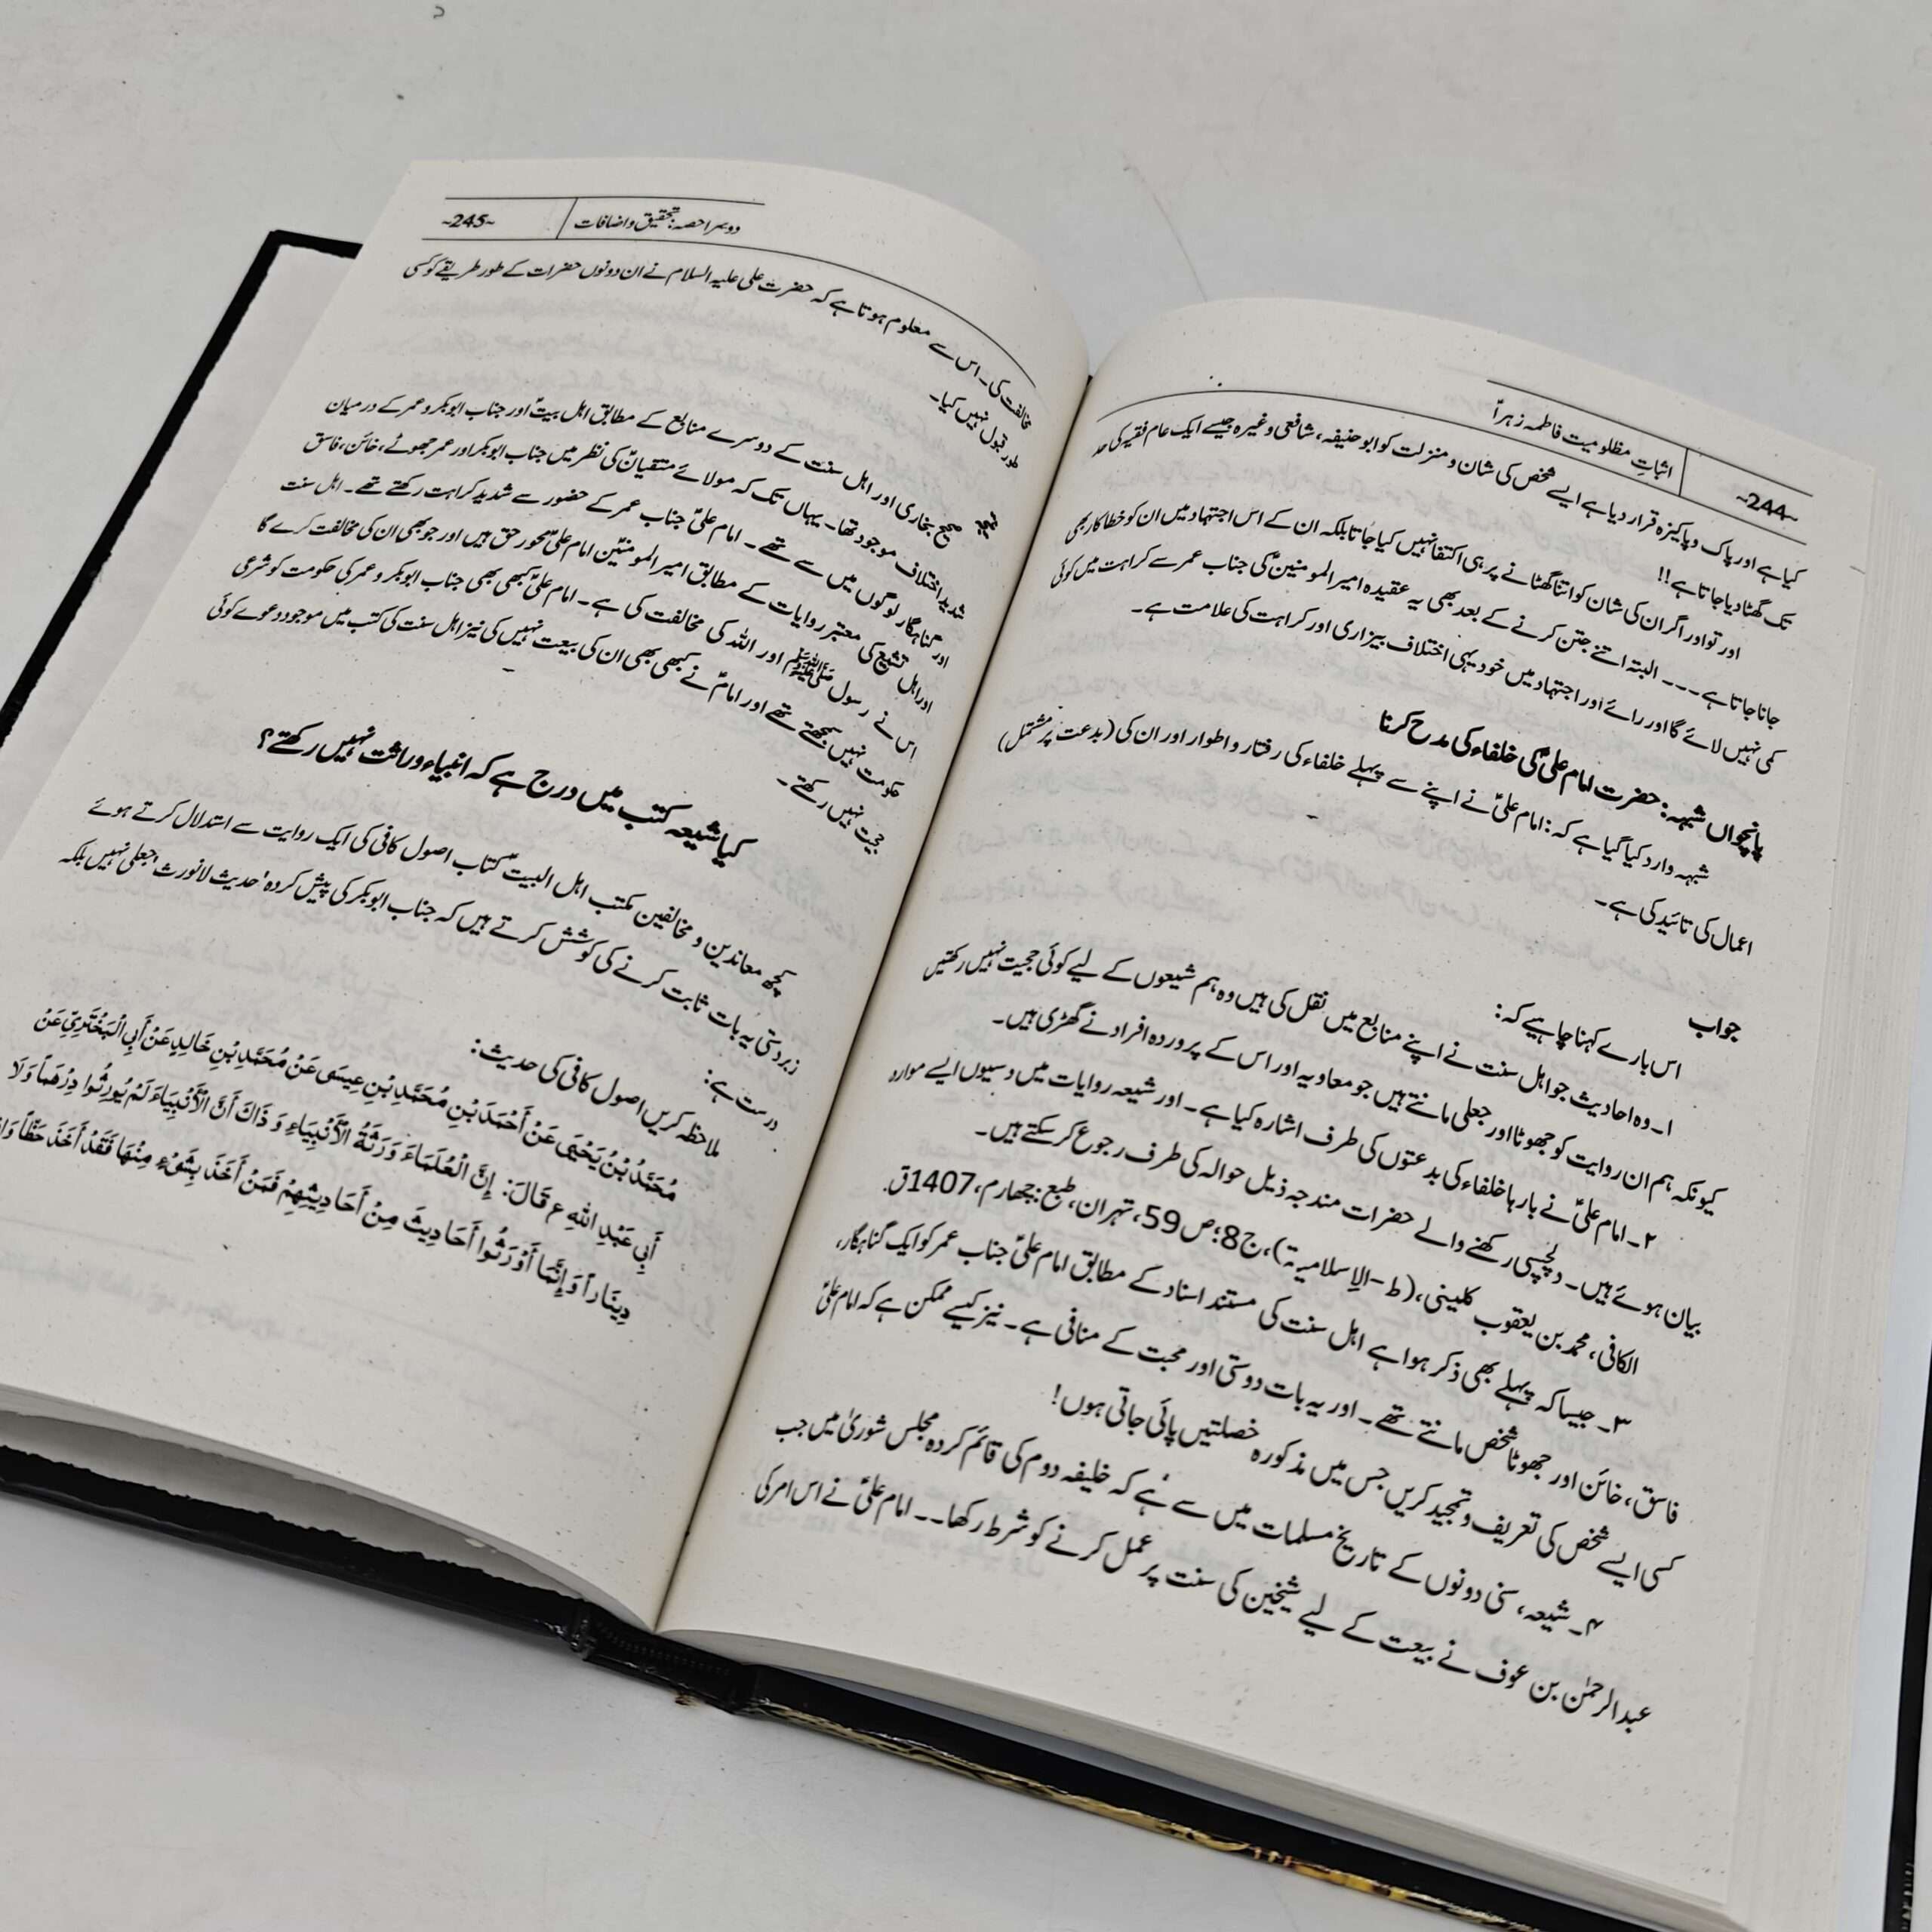 ~244~
اثباتِ مظلومیت فاطمہ زہراؑ
کیا ہے اور پاک و پاکیزہ قرار دیا ہے ایسے شخص کی شان و منزلت کو ابو حنیفہ، شافعی وغیرہ جیسے ایک عام فقیہ کی حد
تک گھٹا دیا جاتا ہے!!
اور تو اور اگر ان کی شان کو اتنا گھٹانے پر ہی اکتفا نہیں کیا جاتا بلکہ ان کے اس اجتہاد میں ان کو خطا کار بھی
جانا جاتا ہے۔۔۔ البتہ اتنے جتن کرنے کے بعد بھی یہ عقیدہ امیر المومنینؑ کی جناب عمر سے کراہت میں کوئی
کمی نہیں لائے گا اور رائے اور اجتہاد میں خود یہی اختلاف بیزاری اور کراہت کی علامت ہے۔
پانچواں شبہہ: حضرت امام علیؑ کی خلفاء کی مدح کرنا
شبہہ وارد کیا گیا ہے کہ: امام علیؑ نے اپنے سے پہلے خلفاء کی رفتار و اطوار اور ان کی (بدعت پر مشتمل)
اعمال کی تائید کی ہے۔
جواب
اس بارے کہنا چاہیے کہ:
۱۔ وہ احادیث جو اہل سنت نے اپنے منابع میں نقل کی ہیں وہ ہم شیعوں کے لیے کوئی حجیت نہیں رکھتیں
کیونکہ ہم ان روایت کو جھوٹا اور جعلی مانتے ہیں جو معاویہ اور اس کے پروردہ افراد نے گھڑی ہیں۔
۲۔ امام علیؑ نے بارہا خلفاء کی بدعتوں کی طرف اشارہ کیا ہے۔ اور شیعہ روایات میں دسیوں ایسے موارد
بیان ہوئے ہیں۔ دلچسپی رکھنے والے حضرات مندجہ ذیل حوالہ کی طرف رجوع کر سکتے ہیں۔
الکافی، محمد بن یعقوب کلینی، (ط-الإسلامیة)، ج8؛ ص59، تہران، طبع: چہارم، 1407ق.
۳۔ جیسا کہ پہلے بھی ذکر ہوا ہے اہل سنت کی مستند اسناد کے مطابق امام علیؑ جناب عمر کو ایک گناہگار،
فاسق، خائن اور جھوٹا شخص مانتے تھے۔ اور یہ بات دوستی اور محبت کے منافی ہے۔ نیز کیسے ممکن ہے کہ امام علیؑ
کسی ایسے شخص کی تعریف و تمجید کریں جس میں مذکورہ خصلتیں پائی جاتی ہوں!
۴۔ شیعہ، سنی دونوں کے تاریخ مسلمات میں سے ہے کہ خلیفہ دوم کی قائم کردہ مجلس شوریٰ میں جب
عبدالرحمٰن بن عوف نے بیعت کے لیے شیخین کی سنت پر عمل کرنے کو شرط رکھا۔۔ امام علیؑ نے اس امر کی
دوسرا حصہ: تحقیق و اضافات
~245~
مخالفت کی۔ اس سے معلوم ہوتا ہے کہ حضرت علی علیہ السلام نے ان دونوں حضرات کے طور طریقے کو کسی
طور قبول نہیں کیا۔
نتیجہ
صحیح بخاری اور اہل سنت کے دوسرے منابع کے مطابق اہل بیتؑ اور جناب ابو بکر و عمر کے درمیان
شدید اختلاف موجود تھا۔ یہاں تک کہ مولائے متقیانؑ کی نظر میں جناب ابو بکر اور عمر جھوٹے، خائن، فاسق
اور گناہگار لوگوں میں سے تھے۔ امام علیؑ جناب عمر کے حضور سے شدید کراہت رکھتے تھے۔ اہل سنت
اور اہل تشیع کی معتبر روایات کے مطابق امیر المومنینؑ امام علیؑ محور حق ہیں اور جو بھی ان کی مخالفت کرے گا
اس نے رسول ﷺ اور اللہ کی مخالفت کی ہے۔ امام علیؑ کبھی بھی جناب ابو بکر و عمر کی حکومت کو شرعی
حکومت نہیں سمجھتے تھے اور امامؑ نے کبھی بھی ان کی بیعت نہیں کی نیز اہل سنت کی کتب میں موجود دعوے کوئی
حجیت نہیں رکھتے۔
کیا شیعہ کتب میں درج ہے کہ انبیاء وراثت نہیں رکھتے؟
کچھ معاندین و مخالفین مکتب اہل البیتؑ کتاب اصول کافی کی ایک روایت سے استدلال کرتے ہوئے
زبردستی یہ بات ثابت کرنے کی کوشش کرتے ہیں کہ جناب ابو بکر کی پیش کردہ 'حدیث لا نورث' جعلی نہیں بلکہ
درست ہے:
ملاحظہ کریں اصول کافی کی حدیث:
مُحَمَّدُ بْنُ يَحْيَى عَنْ أَحْمَدَ بْنِ مُحَمَّدِ بْنِ عِيسَى عَنْ مُحَمَّدِ بْنِ خَالِدٍ عَنْ أَبِي الْبَخْتَرِيِّ عَنْ
أَبِي عَبْدِ اللهِ ع قَالَ: إِنَّ الْعُلَمَاءَ وَرَثَةُ الْأَنْبِيَاءِ وَ ذَاكَ أَنَّ الْأَنْبِيَاءَ لَمْ يُورِثُوا دِرْهَماً وَلَا
دِينَاراً وَإِنَّمَا أَوْرَثُوا أَحَادِيثَ مِنْ أَحَادِيثِهِمْ فَمَنْ أَخَذَ بِشَيْءٍ مِنْهَا فَقَدْ أَخَذَ حَظّاً